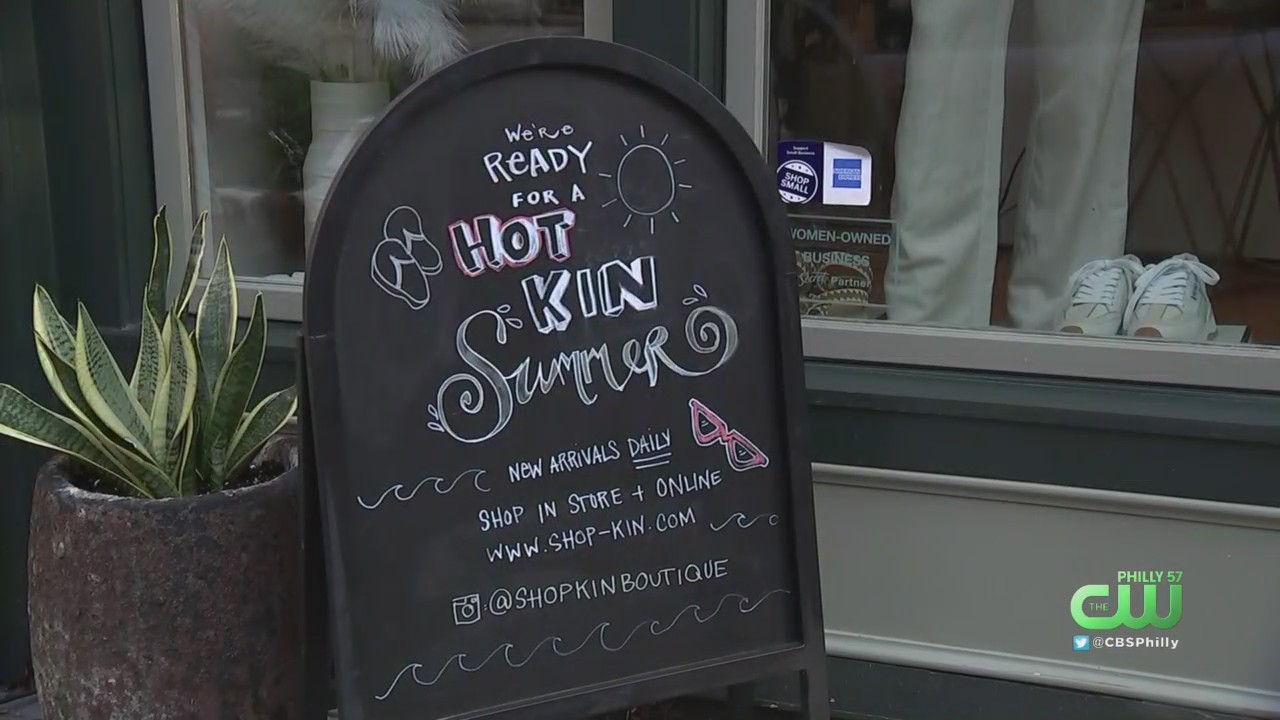 We're
READY
FOR A
HOT
KIN
Summer
NEW ARRIVALS DAILY
SHOP IN STORE + ONLINE
WWW.SHOP-KIN.COM
:@SHOPKINBOUTIQUE
Support
Small Business
SHOP
SMALL
AMERICAN
EXPRESS
WOMEN-OWNED
BUSINESS
Partner
PHILLY 57
THE CW
@CBSPhilly